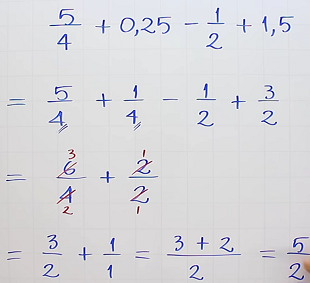 5/4 + 0,25 − 1/2 + 1,5
= 5/4 + 1/4 − 1/2 + 3/2
= 6/4 + 2/2 3 2 1 1
= 3/2 + 1/1 = 3 + 2/2 = 5/2